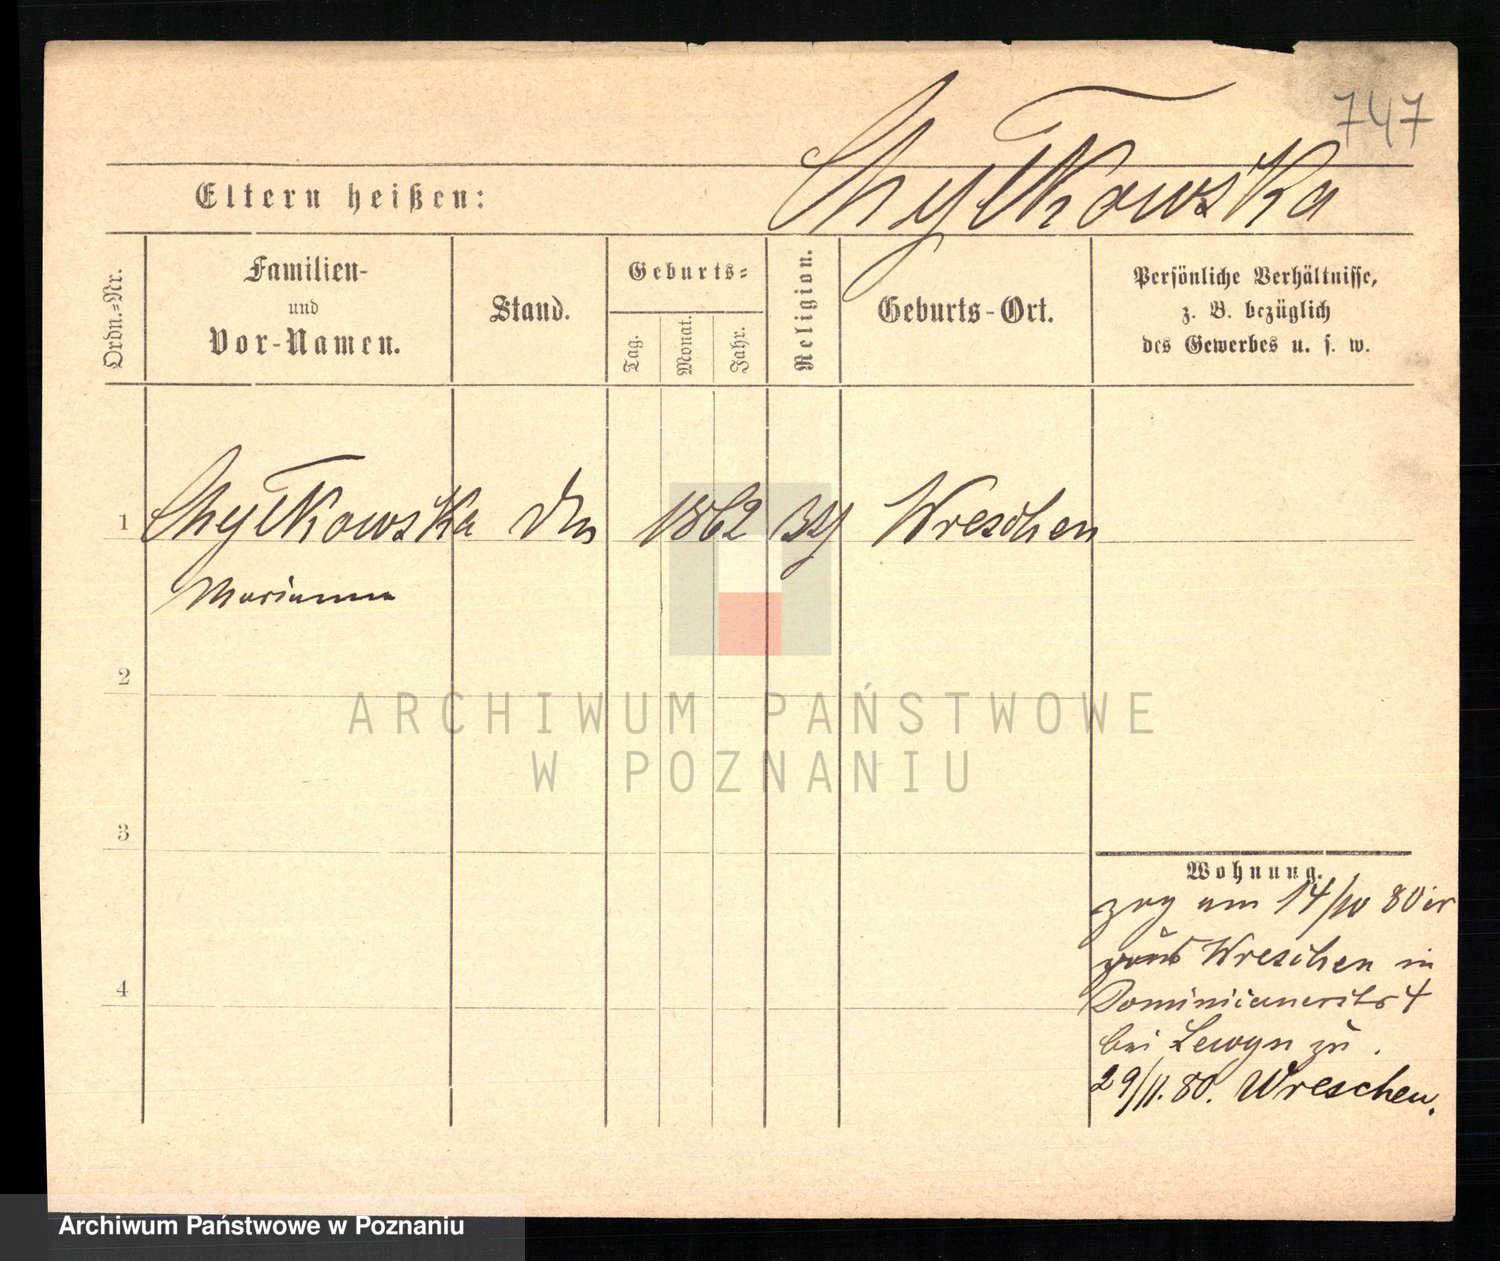 747
Chylkowska
Eltern heißen:
Ordn.-Nr.
Familien-
und
Vor-Namen.
Stand.
Geburts-
Tag.
Monat.
Jahr.
Religion.
Geburts-Ort.
Persönliche Verhältnisse,
z. B. bezüglich
des Gewerbes u. s. w.
1
Chylkowska
1862
Wreschen
Marianna
2
3
4
Wohnung.
am 14/10 80
Wreschen in
Dominicanerstr 4
bei Lewyn zu.
29/11. 80. Wreschen.
ARCHIWUM PAŃSTWOWE
W POZNANIU
Archiwum Państwowe w Poznaniu